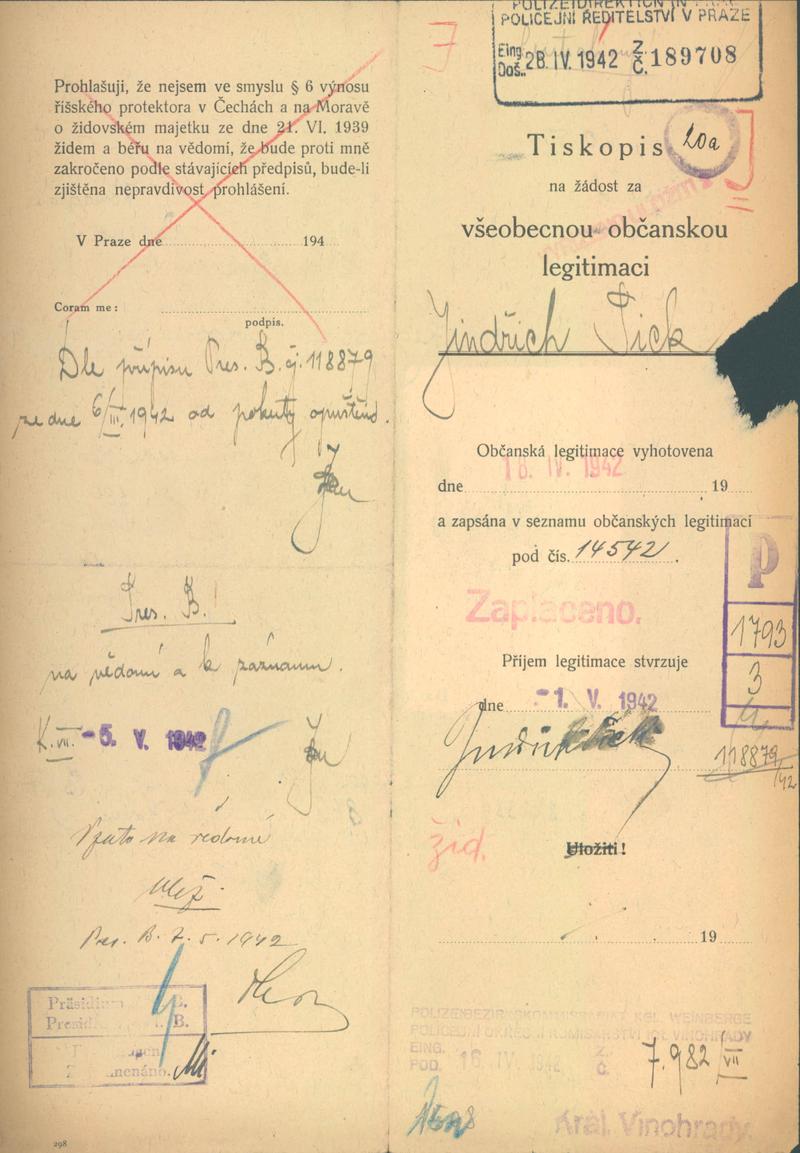 Prohlašuji, že nejsem ve smyslu § 6 výnosu
říšského protektora v Čechách a na Moravě
o židovském majetku ze dne 21. VI. 1939
židem a béřu na vědomí, že bude proti mně
zakročeno podle stávajících předpisů, bude-li
zjištěna nepravdivost prohlášení.
V Praze dne 194
Coram me:
podpis.
Dle přípisu Pres. B. čj. 118879
ze dne 6/III. 1942 od pokuty upuštěno.
Pres. B.
na vědomí a k záznamu.
K. VII. -5. V. 1942
Vzato na vědomí
Pres. B. 7.5.1942
B.
B.
298
POLICEJNÍ ŘEDITELSTVÍ V PRAZE
Eing. Doš. 28. IV. 1942 Z. Č. 189708
Tiskopis 20a
na žádost za
všeobecnou občanskou
legitimaci
Jindřich Pick
Občanská legitimace vyhotovena
18. IV. 1942
dne 19
a zapsána v seznamu občanských legitimací
pod čís. 14542.
P
1793
3
Zaplaceno.
Příjem legitimace stvrzuje
dne -1. V. 1942
118879/42
žid.
Uložiti!
19
POLICEJNÍ OKRES. KOMISAŘSTVÍ KR. VINOHRADY
EING. POD. 16. IV. 1942 Z. Č.
7.982/VII
Král. Vinohrady.